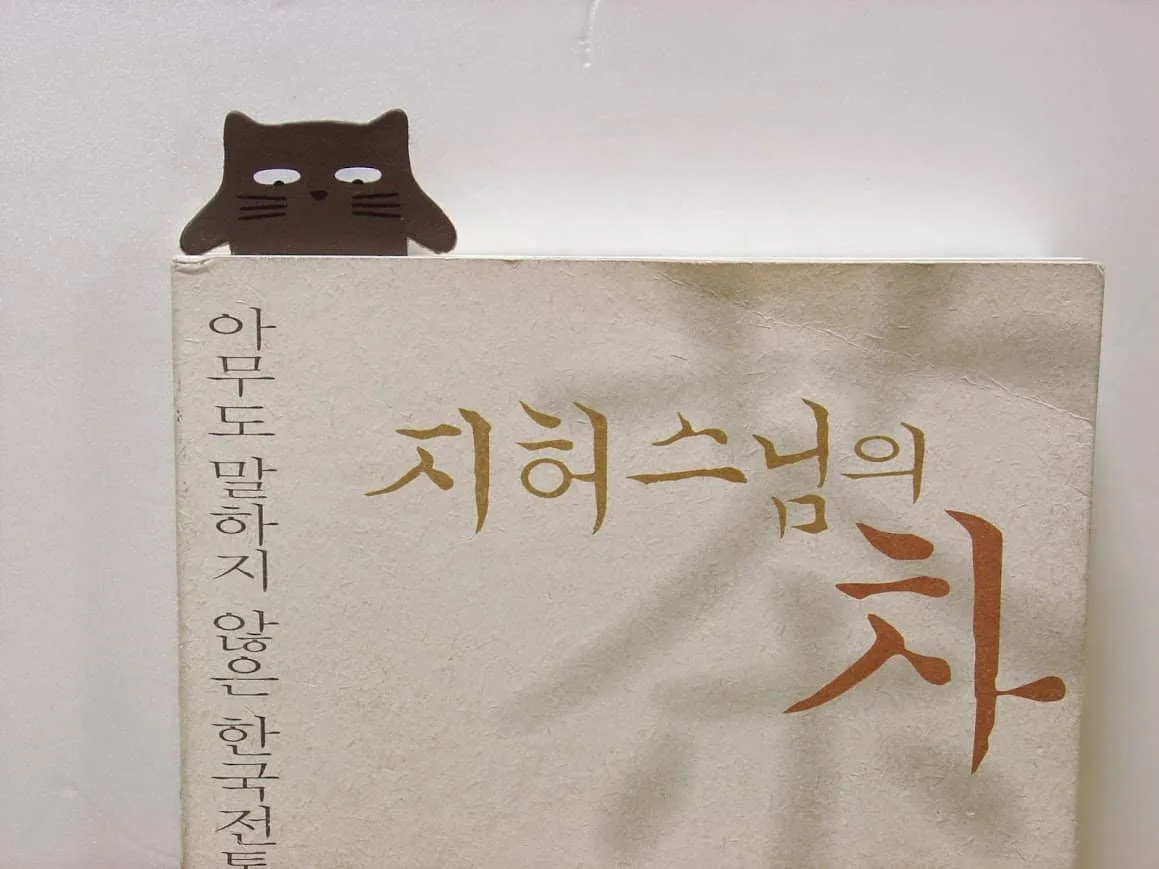 아무도 말하지 않은 한국전
지허스님의
차